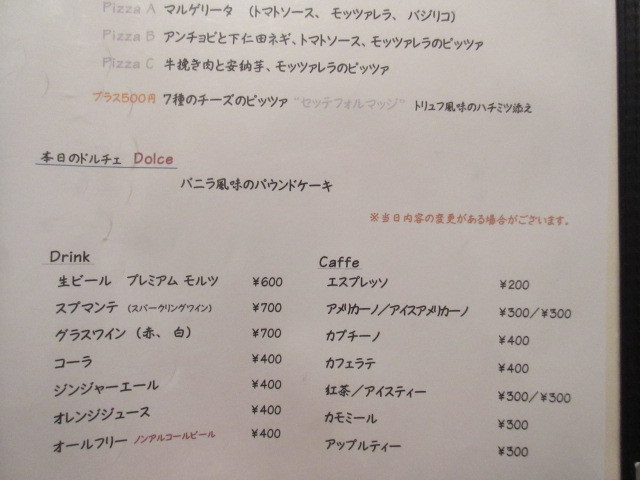 Pizza A マルゲリータ (トマトソース、モッツァレラ、バジリコ)
Pizza B アンチョビと下仁田ネギ、トマトソース、モッツァレラのピッツァ
Pizza C 牛挽き肉と安納芋、モッツァレラのピッツァ
プラス500円 7種のチーズのピッツァ "セッテフォルマッジ" トリュフ風味のハチミツ添え
本日のドルチェ Dolce
バニラ風味のパウンドケーキ
※当日内容の変更がある場合がございます。
Drink
生ビール プレミアム モルツ ¥600
スプマンテ (スパークリングワイン) ¥700
グラスワイン (赤、白) ¥700
コーラ ¥400
ジンジャーエール ¥400
オレンジジュース ¥400
オールフリー ノンアルコールビール ¥400
Caffe
エスプレッソ ¥200
アメリカーノ/アイスアメリカーノ ¥300/¥300
カプチーノ ¥400
カフェラテ ¥400
紅茶/アイスティー ¥300/¥300
カモミール ¥300
アップルティー ¥300